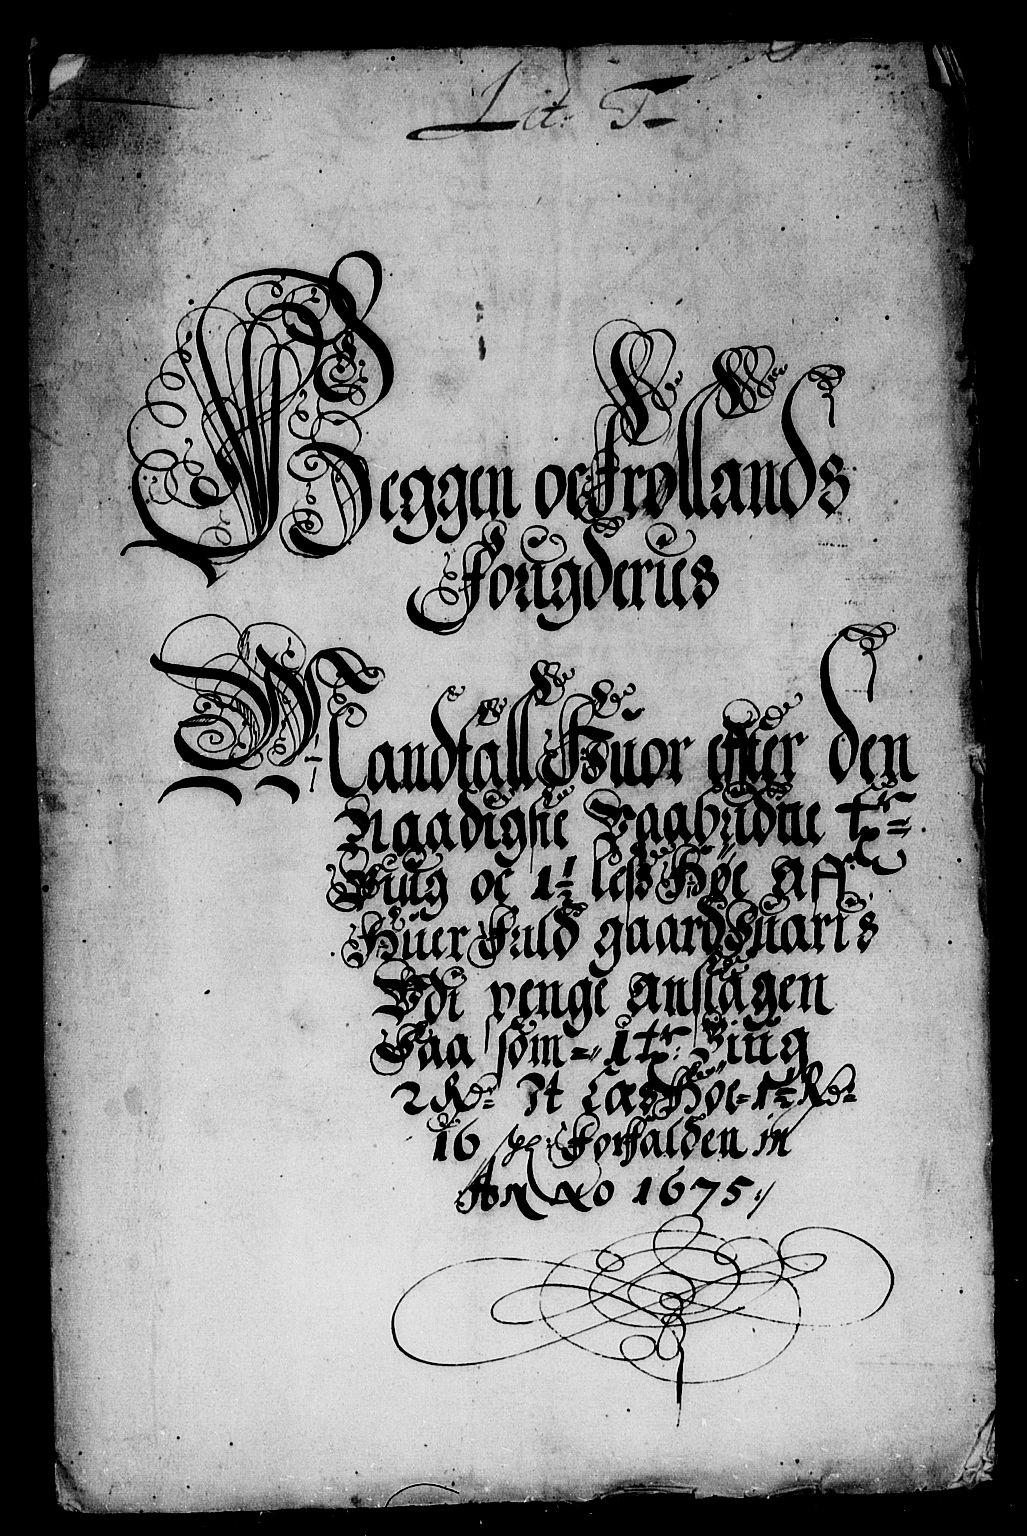 Lit: T.
Heggen oc Frøllands
Fougderies
Mandtall Huor efter den
Naadigste Paabudne tr:
Biug oc 1½ less Høe Aff
Huer Fuld gaard Suaris
Vdi penge anslagen
Paa som = 1 tr: Biug
2 Rdr Et Læs Høe = 1½ Rdr
16 Forfalden in
Anno 1675